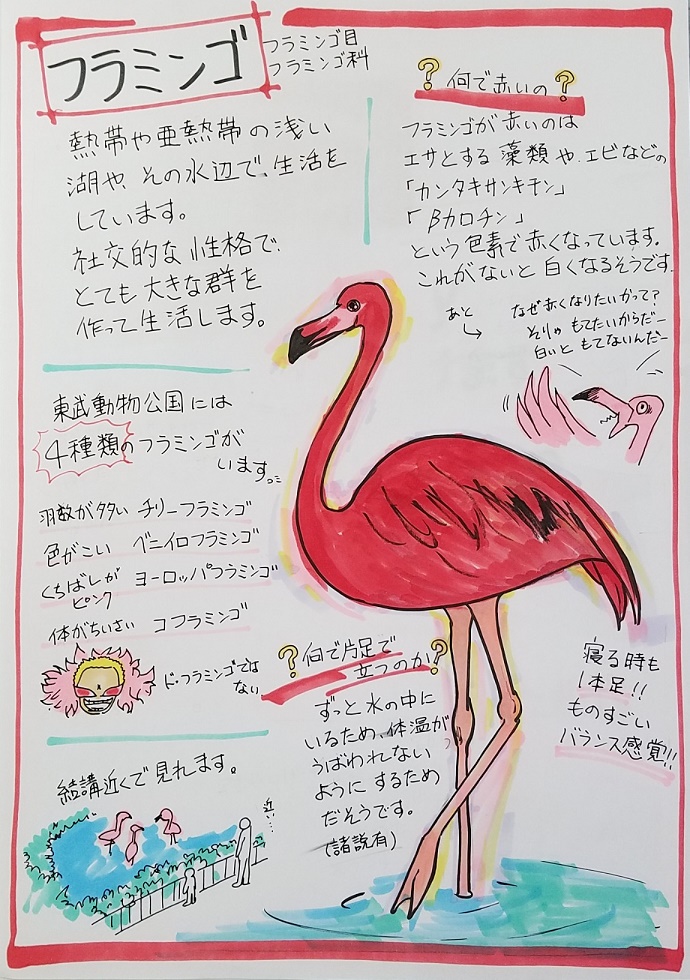 フラミンゴ
フラミンゴ目
フラミンゴ科
熱帯や亜熱帯の浅い
湖や、その水辺で、生活を
しています。
社交的な性格で、
とても大きな群を
作って生活します。
東武動物公園には
4種類のフラミンゴが
います。
羽数が多い チリーフラミンゴ
色がこい ベニイロフラミンゴ
くちばしが ヨーロッパフラミンゴ
ピンク
体がちいさい コフラミンゴ
ド・フラミンゴでは
ない
結講近くで見れます。
近い…
?何で赤いの?
フラミンゴが赤いのは
エサとする藻類や、エビなどの
「カンタキサンキチン」
「βカロチン」
という色素で赤くなっています。
これがないと白くなるそうです。
あと
なぜ赤くなりたいかって?
そりゃもてたいからだー
白いともてないんだー
?何で片足で
立つのか?
ずっと水の中に
いるため、体温が
うばわれない
ようにするため
だそうです。
(諸説有)
寝る時も
1本足!!
ものすごい
バランス感覚!!